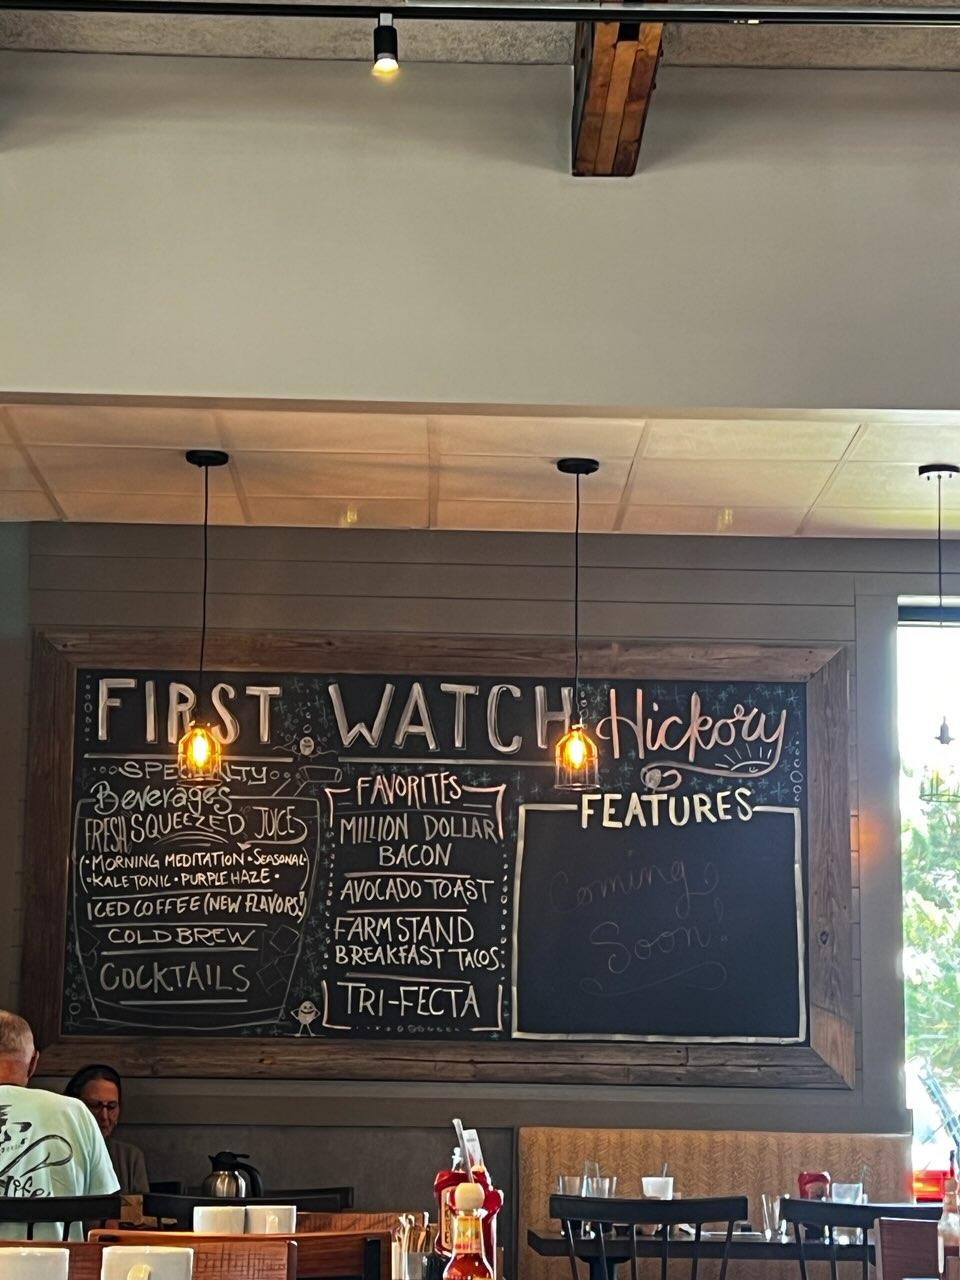 FIRST WATCH Hickory
SPECIALTY
Beverages
FRESH SQUEEZED JUICE
(•MORNING MEDITATION•SEASONAL•
•KALE TONIC•PURPLE HAZE•
ICED COFFEE (NEW FLAVORS!)
COLD BREW
COCKTAILS
FAVORITES
MILLION DOLLAR
BACON
AVOCADO TOAST
FARM STAND
BREAKFAST TACOS
TRI-FECTA
FEATURES
Coming
Soon!
life